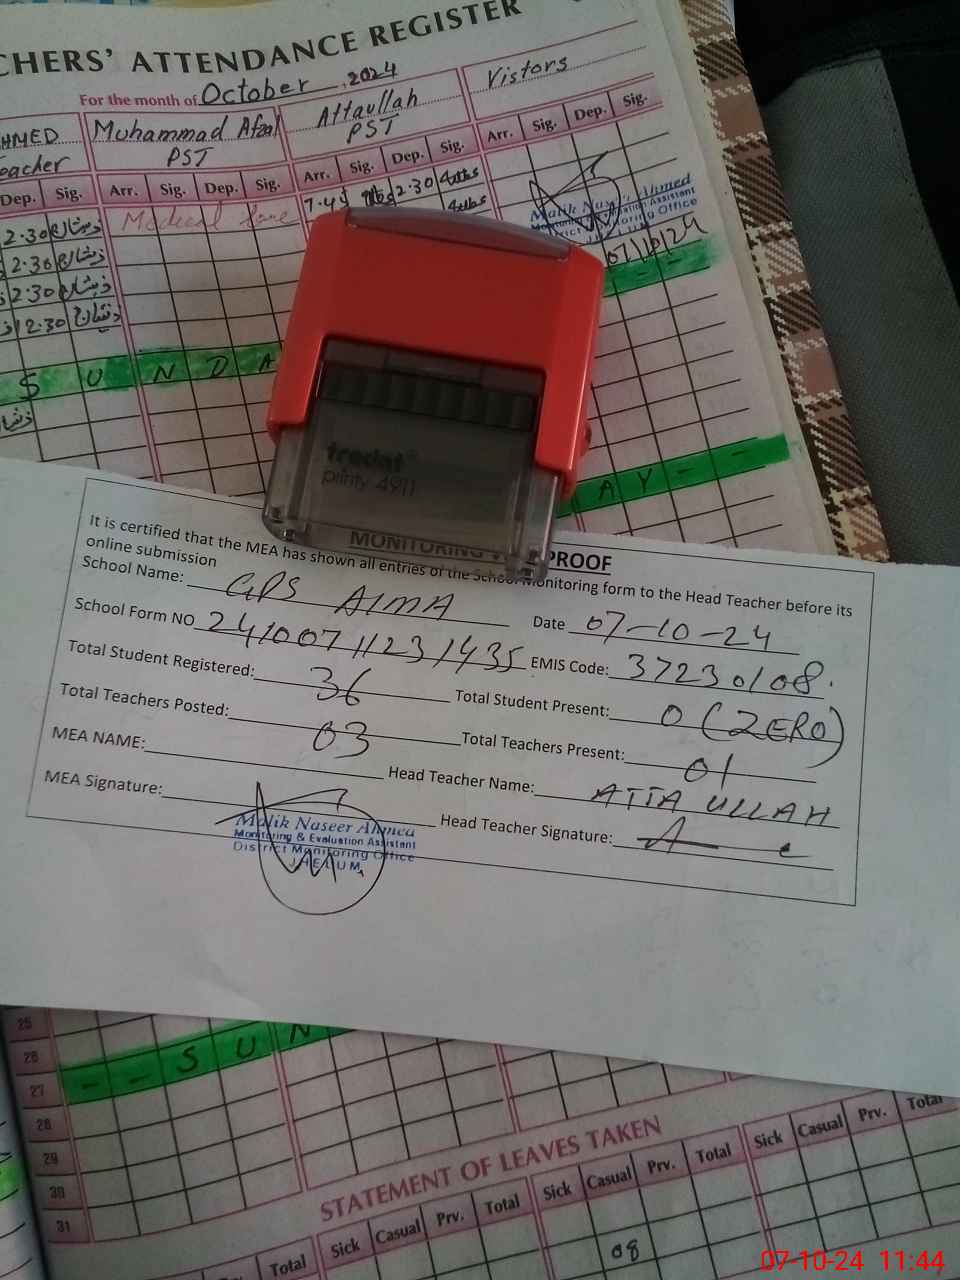 CHERS' ATTENDANCE REGISTER
For the month of October, 2024
HMED Muhammad Afzal Attaullah Vistors
eacher PST PST
Dep. Sig. Arr. Sig. Dep. Sig. Arr. Sig. Dep. Sig. Arr. Sig. Dep. Sig.
2.30 Medical 7.45 2.30
2.30
2.30
2.30
Malik Naseer Ahmed
Monitoring & Evaluation Assistant
District Monitoring Office
07/10/24
S U N D A
A Y - -
trodat
printy 4911
MONITORING PROOF
It is certified that the MEA has shown all entries of the School Monitoring form to the Head Teacher before its
online submission
School Name: GPS AIMA Date 07-10-24
School Form NO 241007112311435 EMIS Code: 37230108.
Total Student Registered: 36 Total Student Present: 0 (ZERO)
Total Teachers Posted: 03 Total Teachers Present: 01
MEA NAME: Head Teacher Name: ATTA ULLAH
MEA Signature: Head Teacher Signature:
Malik Naseer Ahmed
Monitoring & Evaluation Assistant
District Monitoring Office
JHELUM
25
26 - - S U N
27
28
29
30
31
STATEMENT OF LEAVES TAKEN
Prv. Total Sick Casual Prv. Total Sick Casual Prv. Total Sick Casual Prv. Total
08
07-10-24 11:44